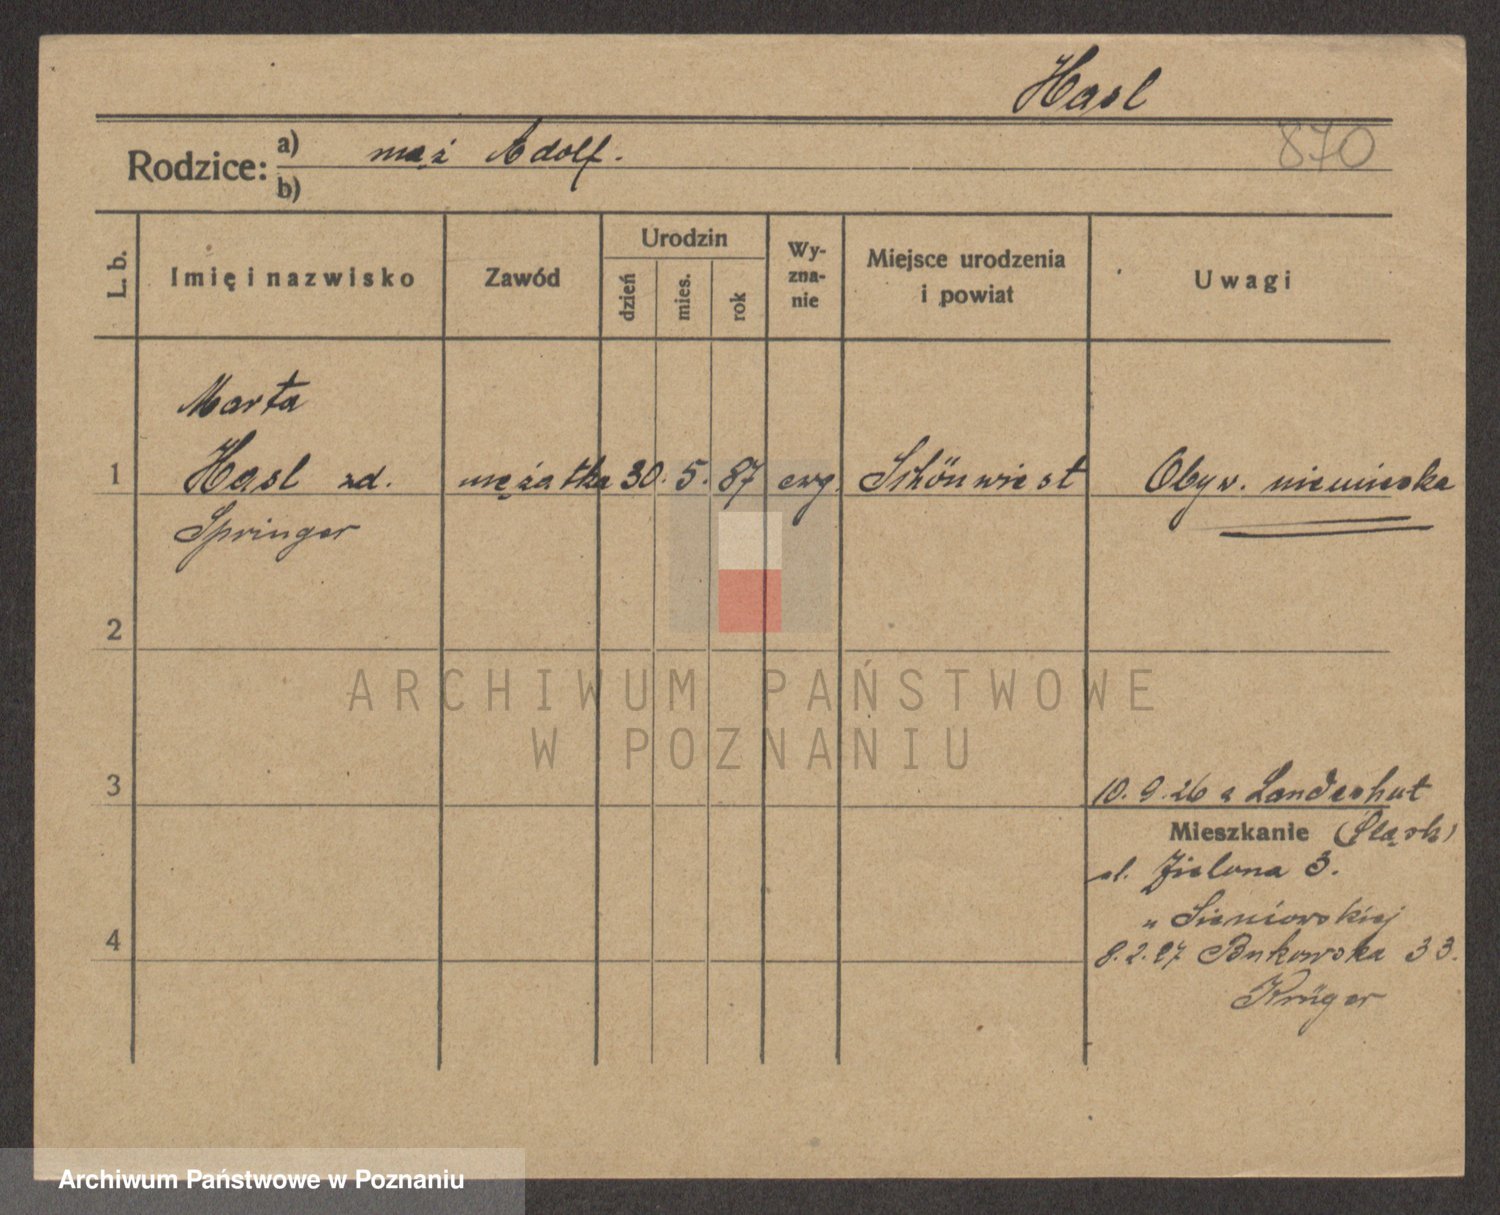 Hasl
870
Rodzice: a) mąż Adolf.
b)
L. b.
Imię i nazwisko
Zawód
Urodzin
dzień
mies.
rok
Wy-
zna-
nie
Miejsce urodzenia
i powiat
Uwagi
Marta
1 Hasl zd. mężatka 30. 5. 87 ewg. Schönwiest Obyw. niemiecka
Springer
2
ARCHIWUM PAŃSTWOWE
W POZNANIU
3 10. 9. 26 z Landeshut
Mieszkanie (Śląsk)
ul. Zielona 3.
„ Sieniawskiej
4 8. 2. 27 Bukowska 33.
Krüger
Archiwum Państwowe w Poznaniu